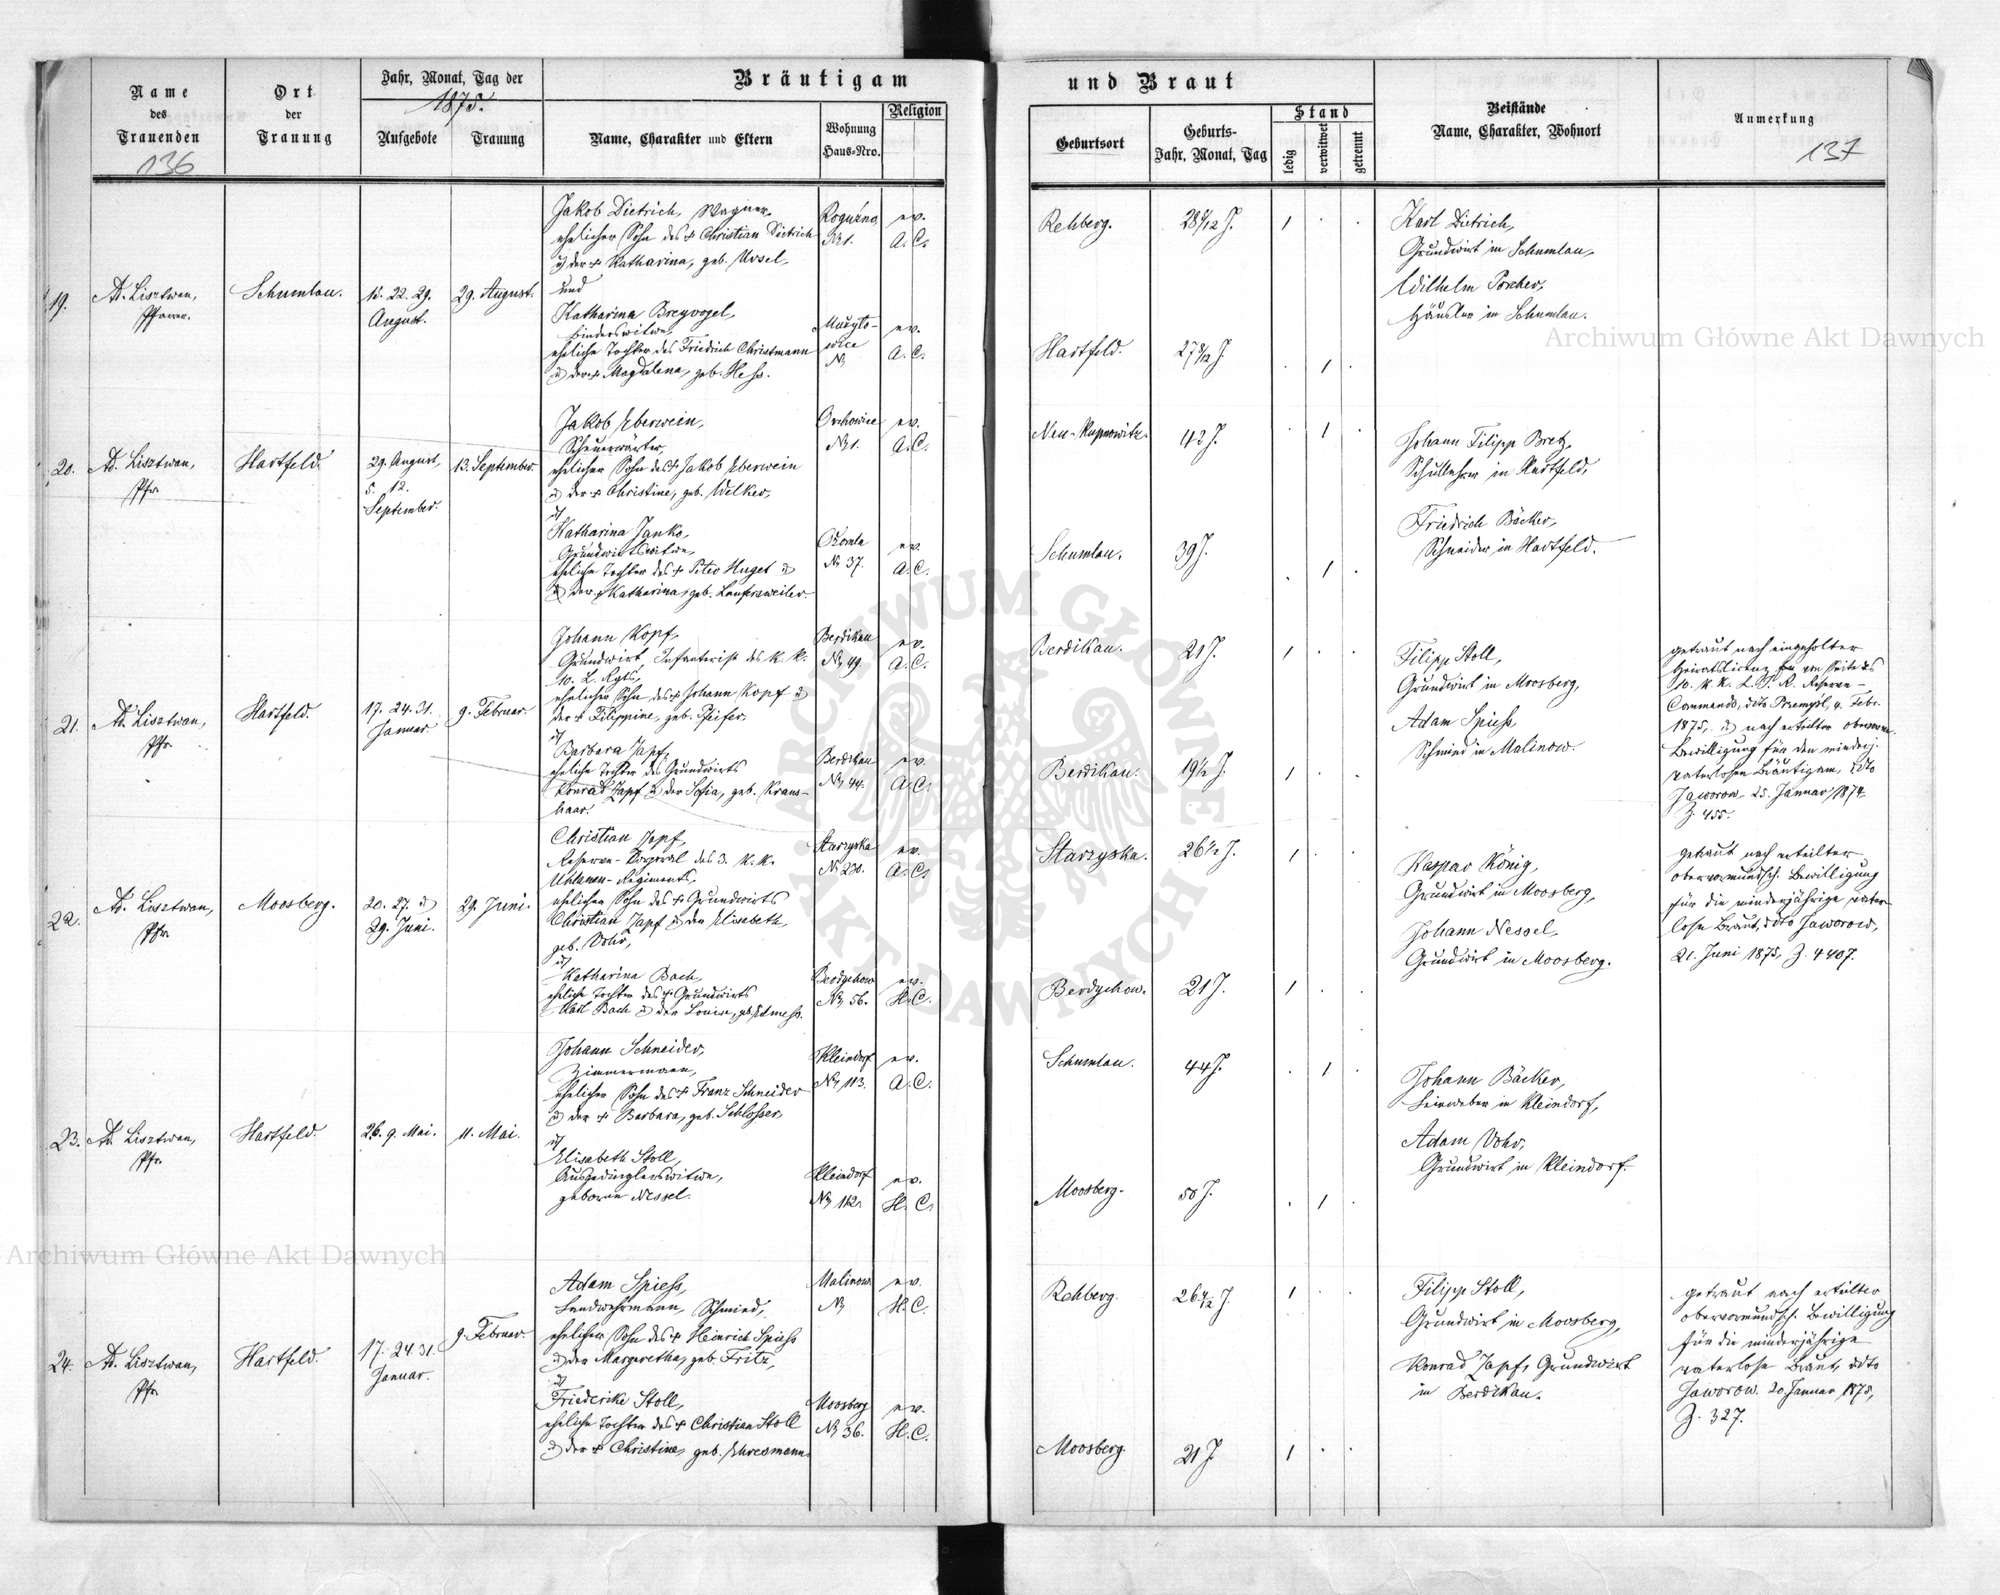 Name
des
Trauenden
136
Ort
der
Trauung
Jahr, Monat, Tag der
1875.
Aufgebote
Trauung
Bräutigam
Name, Charakter und Eltern
Wohnung
Haus-Nro.
Religion
und Braut
Geburtsort
Geburts-
Jahr, Monat, Tag
Stand
ledig
verwitwet
getrennt
Beistände
Name, Charakter, Wohnort
Anmerkung
137
19.
Ad. Lisztwan,
Pfarrer.
Schumlau.
15. 22. 29.
August.
29. August.
Jakob Dietrich, Wagner,
ehelicher Sohn des + Christian Dietrich
u der + Katharina, geb. Ursel,
und
Katharina Breyvogel,
Binderswitwe,
eheliche Tochter des Friedrich Christmann
u der + Magdalena, geb. Hess.
Roguźno
No 1.
ev.
A. C.
Mużyło-
wice
No
ev.
A. C.
Rehberg.
Hartfeld.
Karl Dietrich,
Grundwirt in Schumlau,
Wilhelm Porcher,
Häusler in Schumlau.
20.
Ad. Lisztwan,
Pfr.
Hartfeld.
29. August,
5. 12.
September.
13. September.
Jakob Eberwein,
ehelicher Sohn des + Jakob Eberwein
u der + Christine, geb. Welker,
u
Katharina Janko,
Grundwirtswitwe,
eheliche Tochter des + Peter Huget u
u der + Katharina, geb. Laufersweiler.
No 1.
ev.
A. C.
No 37.
ev.
A. C.
Neu-Kupnowitz.
42 J.
Schumlau.
39 J.
Johann Filipp Bretz,
Schullehrer in Hartfeld,
Friedrich Bäcker,
Schneider in Hartfeld.
21.
Ad. Lisztwan,
Pfr.
Hartfeld.
17. 24. 31.
Januar.
9. Februar.
Johann Kopf,
Grundwirt, Infanterist des K. K.
10. L. Rgts,
ehelicher Sohn des + Johann Kopf u
der + Filippine, geb. Pfeifer,
u
Barbara Zapf,
eheliche Tochter des Grundwirts
Konrad Zapf u der Sofia, geb. Kraus-
haar.
Berdikau
No 49.
ev.
A. C.
Berdikau
No 44.
ev.
A. C.
Berdikau.
21 J.
Berdikau.
19 1/2 J.
Filipp Stoll,
Grundwirt in Moosberg,
Adam Spiess,
Schmied in Malinow.
getraut nach eingeholter
10. K. K. L. I. R. Reserve-
Commando, ddto Przemyśl, 4. Febr.
1875, u nach erteilter obervorm.
Bewilligung für den minderj.
vaterlosen Bräutigam, ddto
Jaworow, 25. Januar 1874
Z. 455.
22.
Ad. Lisztwan,
Pfr.
Moosberg.
20. 27. u
29. Juni.
29. Juni.
Christian Zapf,
Reserve-Korporal des 3. K. K.
Uhlanen-Regiments,
ehelicher Sohn des + Grundwirts
Christian Zapf u der Elisabeth,
geb. Vohr,
u
Katharina Bach,
eheliche Tochter des + Grundwirts
Karl Bach u der Louise, geb.
Starzyska
No 230.
ev.
A. C.
Berdychow
No 56.
ev.
H. C.
Starzyska.
26 1/2 J.
Berdychow.
21 J.
Kaspar König,
Grundwirt in Moosberg,
Johann Nessel,
Grundwirt in Moosberg.
getraut nach erteilter
obervormundsch. Bewilligung
für die minderjährige vater-
lose Braut, ddto Jaworow,
21. Juni 1875, Z. 4407.
23.
Ad. Lisztwan,
Pfr.
Hartfeld.
2. 6. 9. Mai.
11. Mai.
Johann Schneider,
Zimmermann,
ehelicher Sohn des + Franz Schneider
u der + Barbara, geb. Schlosser,
u
Elisabeth Stoll,
Ausgedinglerswitwe,
geborne Nessel.
Kleindorf
No 113.
ev.
A. C.
Kleindorf
No 112.
ev.
H. C.
Schumlau.
44 J.
Moosberg.
50 J.
Johann Bäcker,
Leinweber in Kleindorf,
Adam Vohr,
Grundwirt in Kleindorf.
24.
Ad. Lisztwan,
Pfr.
Hartfeld.
17. 24. 31.
Januar.
9. Februar.
Adam Spiess,
Landwehrmann, Schmied,
ehelicher Sohn des + Heinrich Spiess
u der Margaretha, geb. Fritz,
u
Friederike Stoll,
eheliche Tochter des + Christian Stoll
u der + Christine, geb. Ehresmann.
Malinow
No
ev.
H. C.
Moosberg
No 36.
ev.
H. C.
Rehberg.
Moosberg.
21 J.
Filipp Stoll,
Grundwirt in Moosberg,
Konrad Zapf, Grundwirt
in Berdikau.
getraut nach erteilter
obervormundsch. Bewilligung
für die minderjährige
vaterlose Braut, ddto
Jaworow. 20. Januar 1875,
Z. 327.
Archiwum Główne Akt Dawnych
Archiwum Główne Akt Dawnych
ARCHIWUM GŁÓWNE AKT DAWNYCH